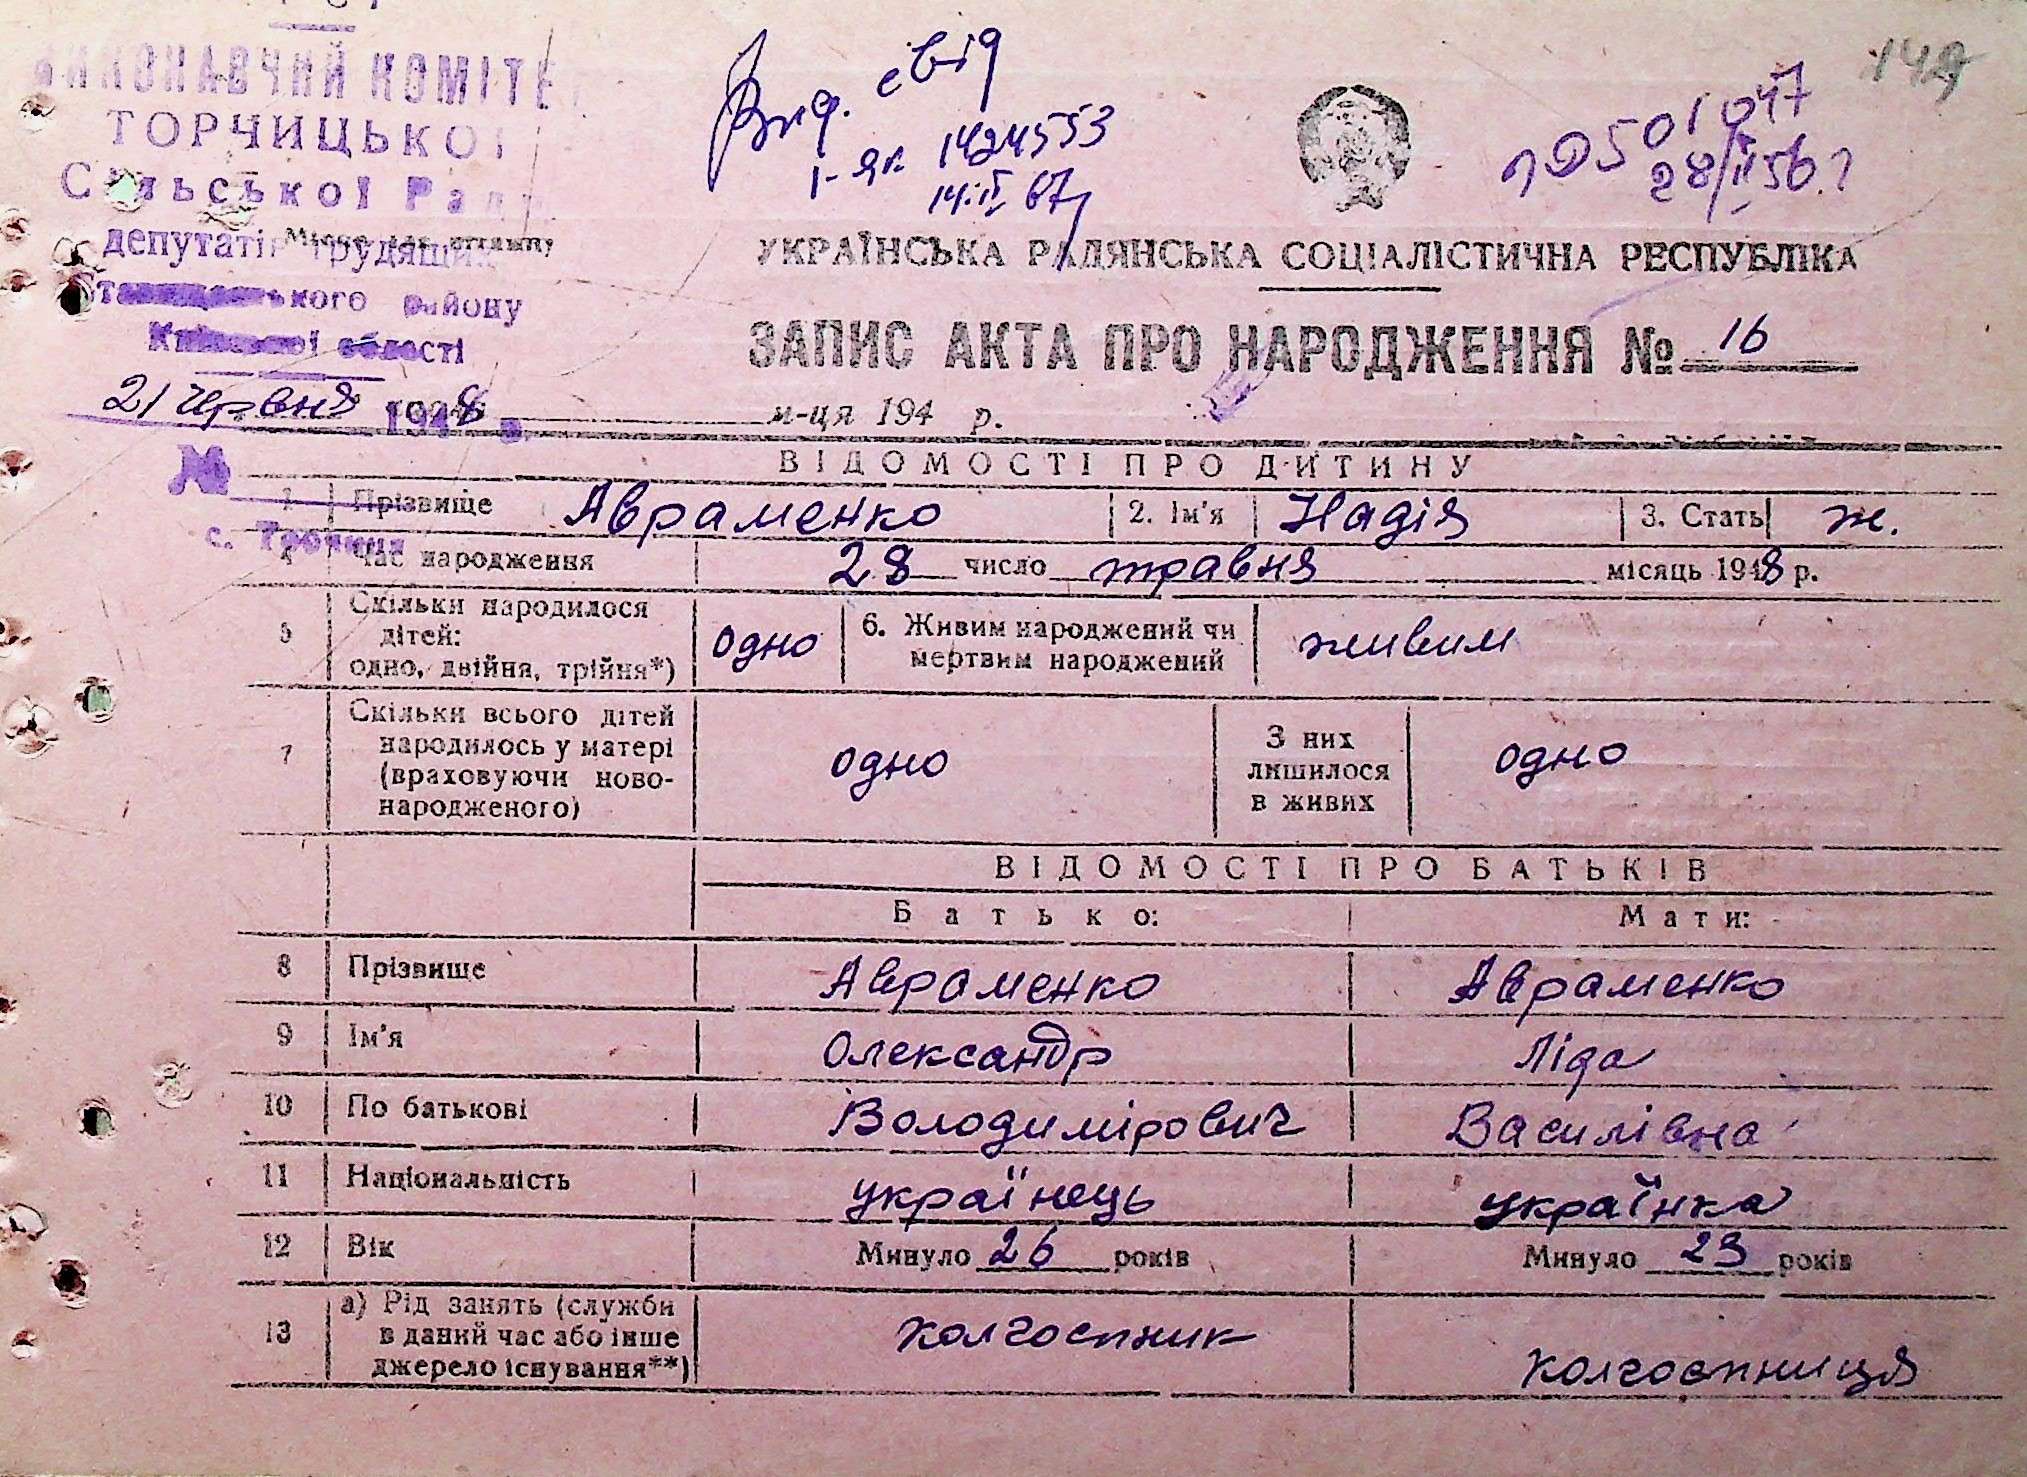 ВИКОНАВЧИЙ КОМІТЕ
ТОРЧИЦЬКОЇ
Сільської Ради
депутатів трудящих
Місце для штампу
ського району
Київської області
21 червня 1948 р.
№
Вид. свід
І-ЯК 1424553
14.ІІ 67
501047
28/ІІ 56 г
149
УКРАЇНСЬКА РАДЯНСЬКА СОЦІАЛІСТИЧНА РЕСПУБЛІКА
ЗАПИС АКТА ПРО НАРОДЖЕННЯ № 16
м-ця 194 р.
ВІДОМОСТІ ПРО ДИТИНУ
1 Прізвище Авраменко 2. Ім'я Надія 3. Стать ж.
с.
4 Час народження 28 число травня місяць 1948 р.
5 Скільки народилося дітей: одно, двійня, трійня*) одно 6. Живим народжений чи мертвим народжений живим
7 Скільки всього дітей народилось у матері (враховуючи ново-народженого) одно З них лишилося в живих одно
ВІДОМОСТІ ПРО БАТЬКІВ
Батько: Мати:
8 Прізвище Авраменко Авраменко
9 Ім'я Олександр Ліда
10 По батькові Володимірович Василівна
11 Національність українець українка
12 Вік Минуло 26 років Минуло 23 років
13 а) Рід занять (служби в даний час або інше джерело існування**) колгоспник колгоспниця